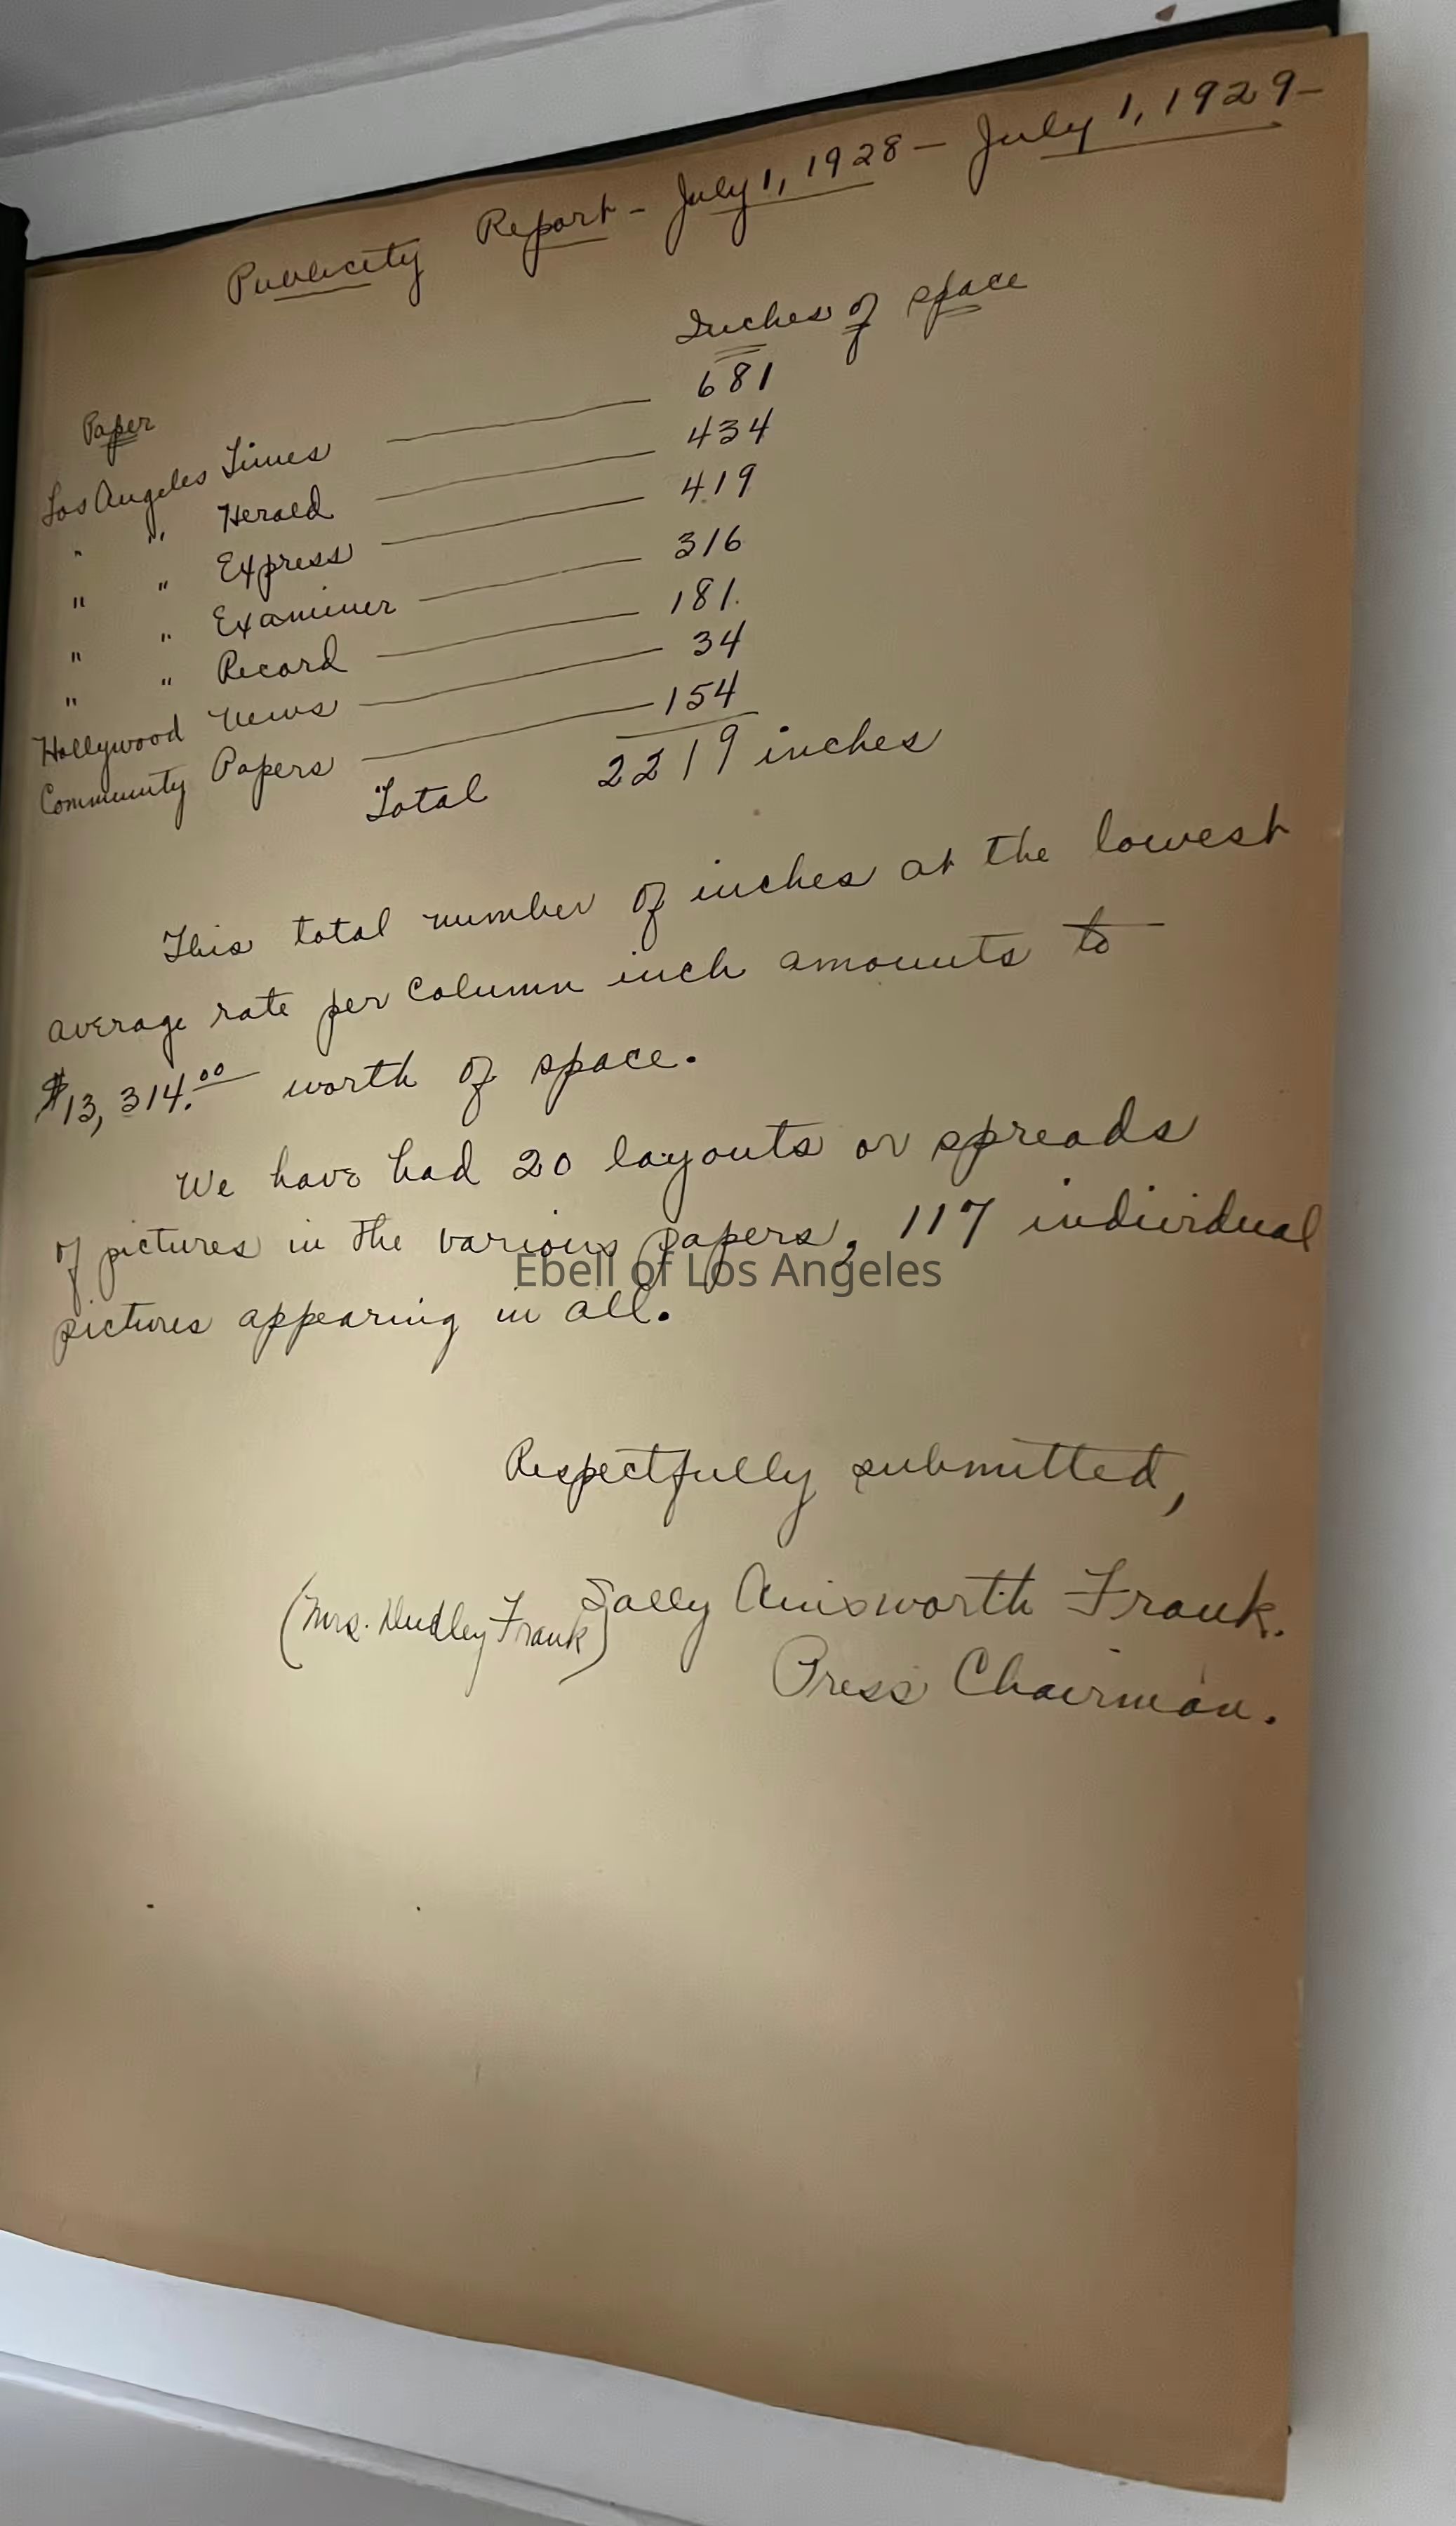 Publicity Report - July 1, 1928 - July 1, 1929 -
Inches of space
Paper
Los Angeles Times 681
" " Herald 434
" " Express 419
" " Examiner 316
" " Record 181.
Hollywood News 34
Community Papers 154
Total 2219 inches
This total number of inches at the lowest
average rate per column inch amounts to
$13,314.00 worth of space.
We have had 20 layouts or spreads
of pictures in the various papers, 117 individual
pictures appearing in all.
Ebell of Los Angeles
Respectfully submitted,
(Mrs. Dudley Frank) Sally Ainsworth Frank.
Press Chairman.